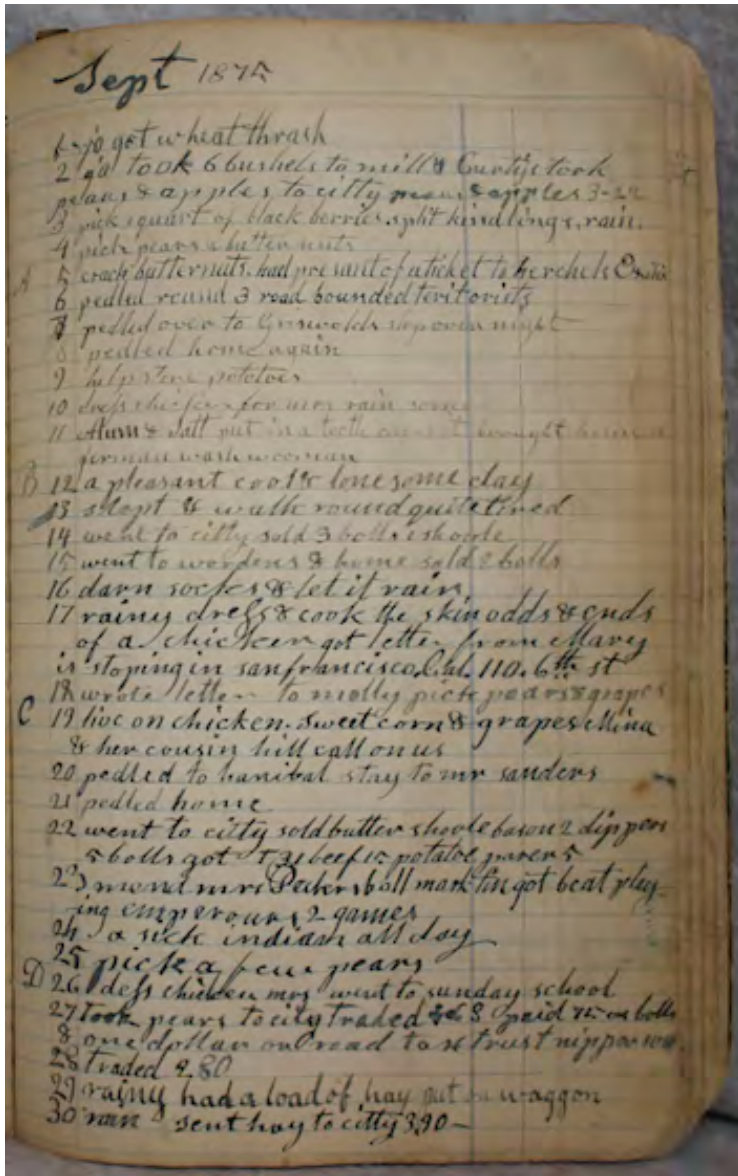 Sept 1875
1 jo got wheat thrash
2 jo took 6 bushels to mill & Curtiss took
pears & apples to citty pears & apples 3-22
3 pick 1 quart of black berries. split kindlings, rain.
4 pick pears & butter nuts
A 5 crack butternuts. had presant of a ticket to
6 pedled round 3 road bounded teritorists
7 pedled over to Griswolds stop over night
8 pedled home again
9 help potatoes
10 dress chicken for mrs rain some
11 Alum & Salt put in a teeth brought home a
german wash wooman
B 12 a pleasant cool & lonesome day
13 slept & walk round quite tired
14 went to citty sold 3 bolls 1 shoole
15 went to wordens & home sold 2 bolls
16 darn socks & let it rain
17 rainy dress & cook the skin odds & ends
of a chicken got letter from Mary
is stoping in sanfrancisco Cal. 110. 6th st
18 wrote letter to molly pick pears & grapes
C 19 live on chicken. sweet corn & grapes Mina
& her cousin hill call on us
20 pedled to hanibal stay to mr sanders
21 pedled home
22 went to citty sold butter shoole bason 2 dippers
5 bolls got beef 15 potatoe parer 5
23 mend mrs boll got beat play-
ing emperours 2 games
24 a sick indian all day
25 pick a few pears
D 26 dess chicken mrs went to sunday school
27 took pears to city traded paid 75 on bolls
8 one dollar on road to trust
28 traded 2.80
29 rainy had a load of hay put on waggon
30 rain sent hay to citty 3,90-